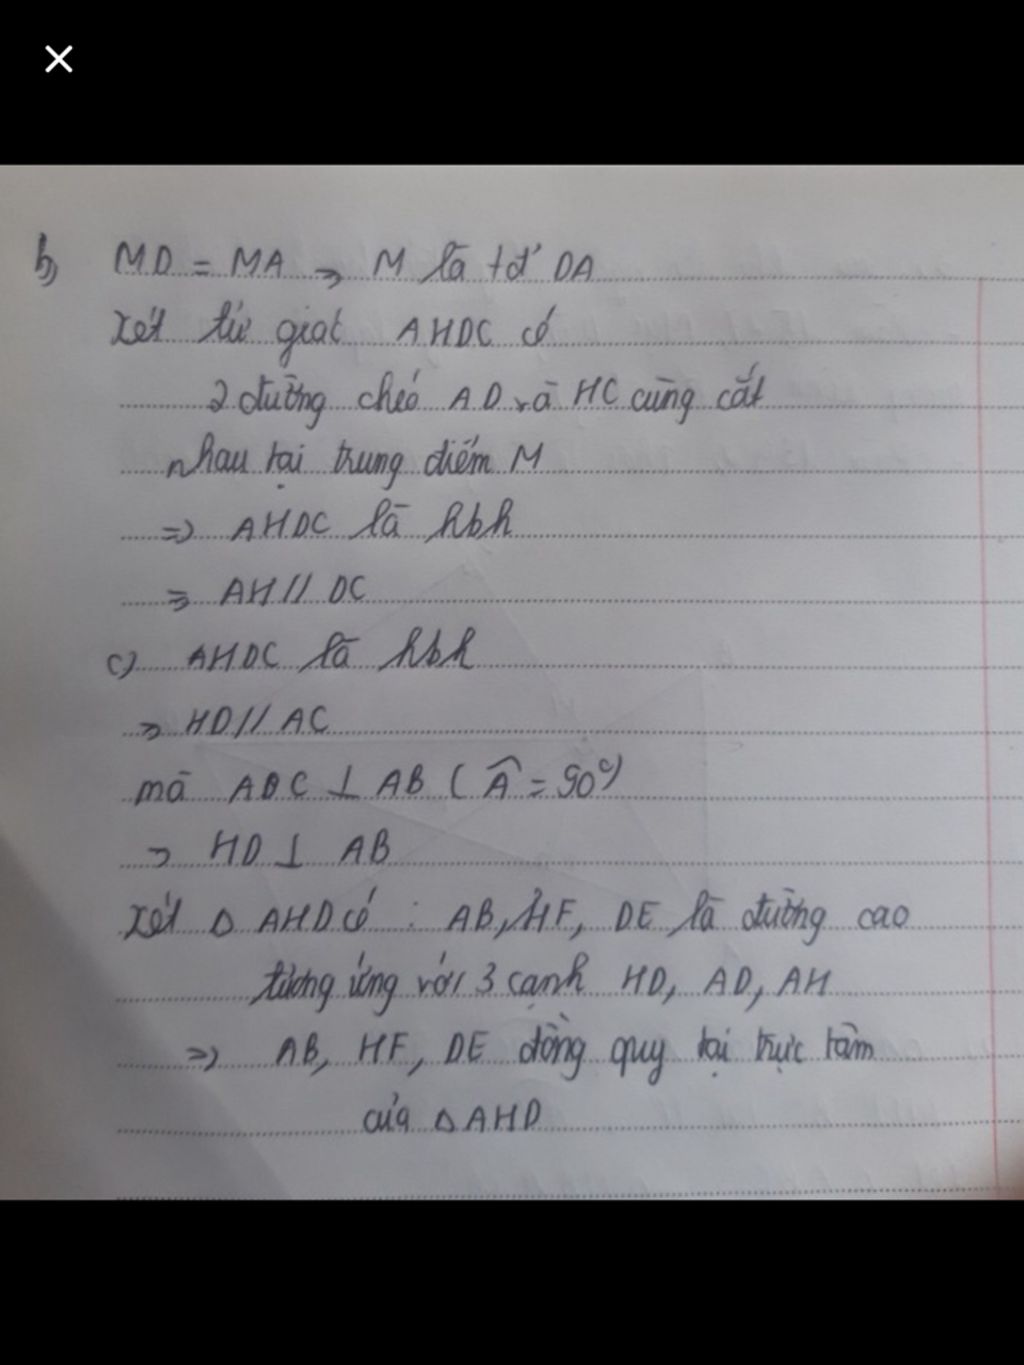 b) MD = MA => M là tđ' DA
Xét tứ giat AHDC có
2 đường chéo AD và HC cùng cắt
nhau tại trung điểm M
=> AHDC là hbh
=> AH // DC
c) AHDC là hbh
=> HD // AC
mà ABC ⊥ AB ( Â = 90°)
=> HD ⊥ AB
Xét Δ AHD có : AB, HF, DE là đường cao
tương ứng với 3 cạnh HD, AD, AH
=> AB, HF, DE đồng quy tại trực tâm
của Δ AHD